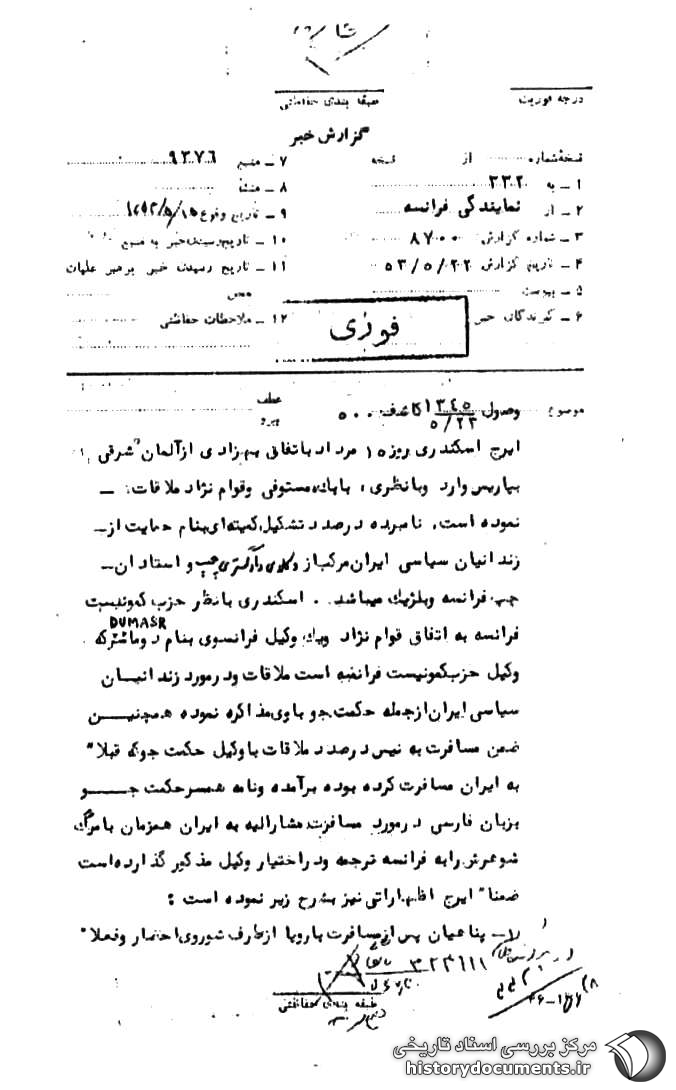 طبقه بندی حفاظتی
درجه فوریت
گزارش خبر
نسخه شماره از نسخه
۱ – به ۳۳۲
۲ – از نمایندگی فرانسه
۳ – شماره گزارش ۸۷۰۰
۴ – تاریخ گزارش ۵۳/۵/۲۲
۵ – پیوست
۶ – گیرندگان خبر
۷ – منبع ۹۳۷۶
۸ – منشأ
۹ – تاریخ وقوع
۱۰ – تاریخ رسیدن خبر به منبع
۱۱ – تاریخ رسیدن خبر برهبر عملیات
محل
۱۲ – ملاحظات حفاظتی
فوری
موضوع وصول ۱۳۴۵ کاشف ۵۰۰
۵/۲۳
عطف
پیرو
ایرج اسکندری روز ۱۵ مرداد باتفاق بهزادی ازآلمان شرقی
بپاریس وارد وبانظری، بابك، مستوفی وقوام نژاد ملاقات –
نموده است. نامبرده درصدد تشکیل کمیته‌ای بنام حمایت از –
زندانیان سیاسی ایران مرکب از وکلای دادگستری چپ و استادان –
چپ فرانسه وبلژیك میباشد.. اسکندری بانظر حزب کمونیست
فرانسه به اتفاق قوام نژاد ویك وکیل فرانسوی بنام دوما شترکه
DUMASR
وکیل حزب کمونیست فرانسه است ملاقات ودرمورد زندانیان
سیاسی ایران ازجمله حکمت جو باوی مذاکره نموده همچنین
ضمن مسافرت به نیس درصدد ملاقات باوکیل حکمت جو که قبلا"
به ایران مسافرت کرده بوده برآمده ونامه همسر حکمت جو
بزبان فارسی درمورد مسافرت مشارالیه به ایران همزمان بامرگ
شوهرش رابه فرانسه ترجمه ودراختیار وکیل مذکور گذارده است
ضمنا" ایرج اظهاراتی نیز بشرح زیر نموده است :
۱– پناهیان پس ازمسافرت باروپا ازطرف شوروی احضار وفعلا"
۳۲۳۶۱۱
طبقه بندی حفاظتی
مرکز بررسی اسناد تاریخی
historydocuments.ir